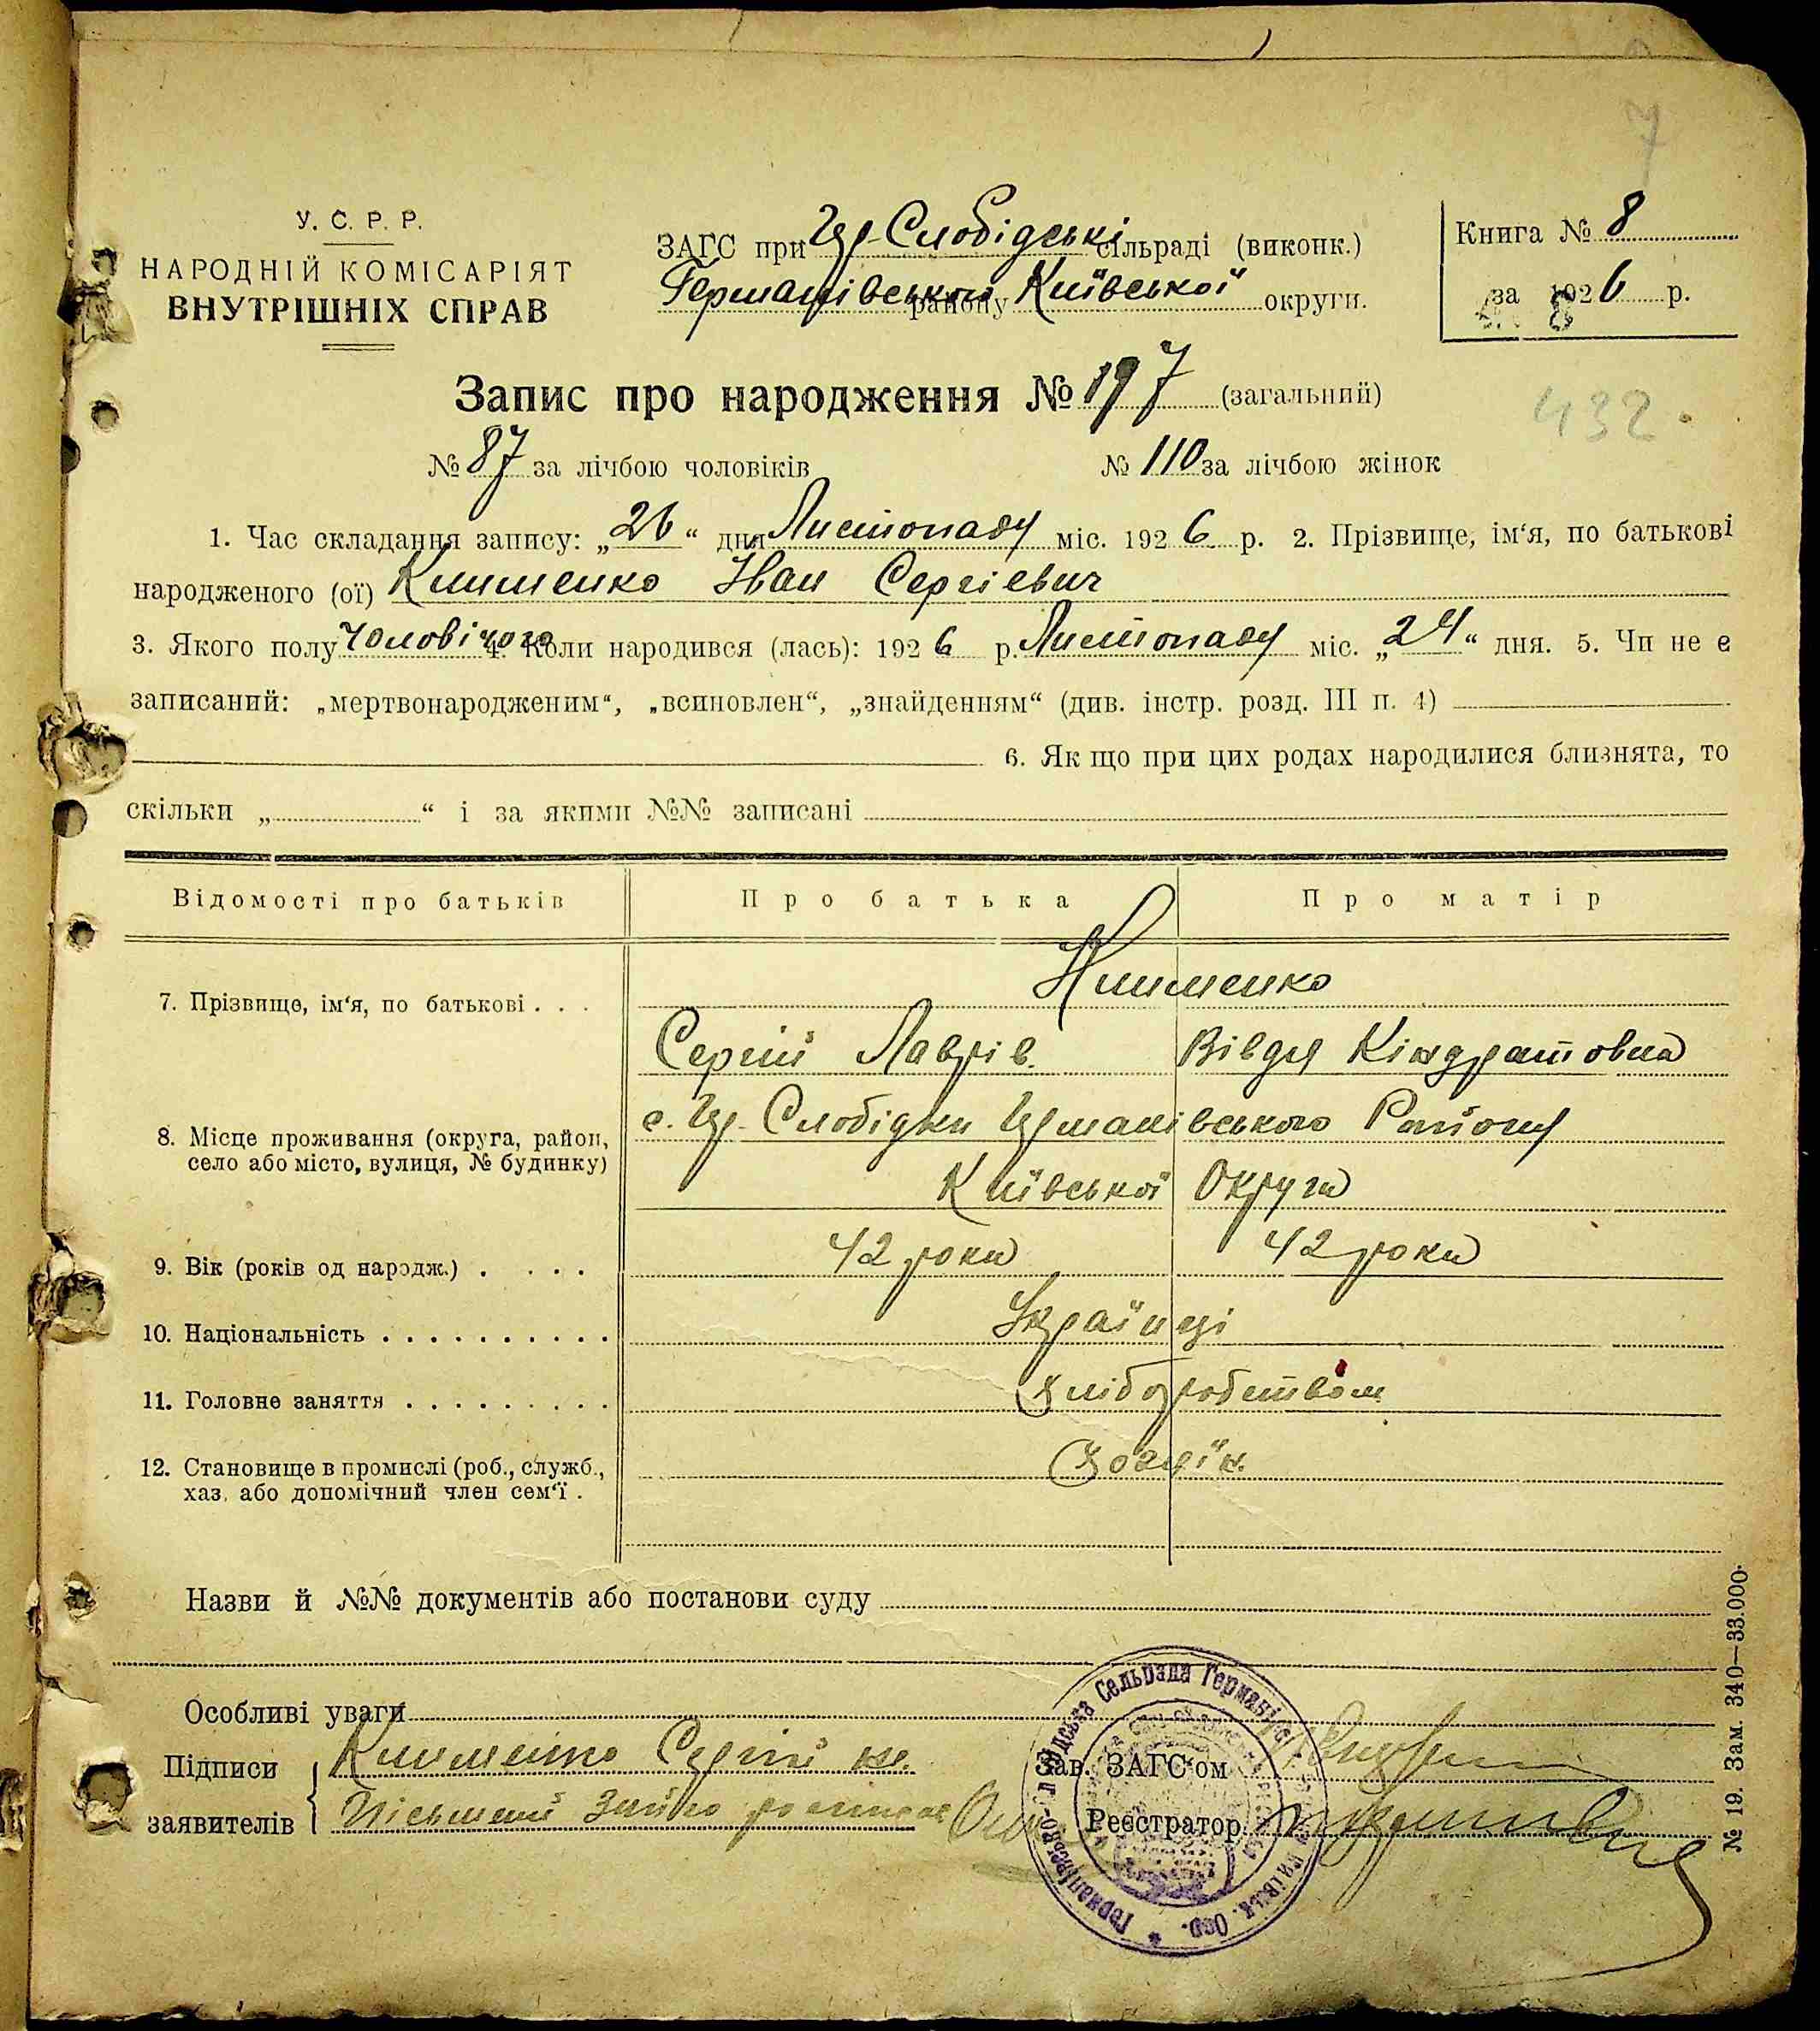 У. С. Р. Р.
НАРОДНІЙ КОМІСАРІЯТ
ВНУТРІШНІХ СПРАВ
ЗАГС при Гер-Слобідські сільраді (виконк.)
Германівською району Київської округи.
Книга № 8
за 1926 р.
7
Запис про народження № 197 (загальний)
432.
№ 87 за лічбою чоловіків № 110 за лічбою жінок
1. Час складання запису: „26“ дня Листопаду міс. 1926 р. 2. Прізвище, ім‘я, по батькові
народженого (ої) Клименко Іван Сергієвич
3. Якого полу чоловічого 4. Коли народився (лась): 1926 р. Листопаду міс. „24“ дня. 5. Чи не є
записаний: „мертвонародженим“, „всиновлен“, „знайденням“ (див. інстр. розд. III п. 4)
6. Як що при цих родах народилися близнята, то
скільки „ “ і за якими №№ записані
Відомості про батьків Про батька Про матір
7. Прізвище, ім‘я, по батькові . . . Клименко
Сергій Лаврів. Вівдя Кіндратовна
8. Місце проживання (округа, район,
село або місто, вулиця, № будинку)
с. Гер-Слобідки Германівського Району
Київської Округи
9. Вік (років од народж.) . . . . 42 роки 42 роки
10. Національність . . . . . . . . . . Українці
11. Головне заняття . . . . . . . . . хліборобством
12. Становище в промислі (роб., служб.,
хаз. або допомічний член сем‘ї .
Хозяїн.
Назви й №№ документів або постанови суду
Особливі уваги
Підписи заявителів
Клименко Сергій
Зав. ЗАГС‘ом
Реєстратор
Германівсько-Слобідська Сельрада Германівс Київськ. Окр.
№ 19. Зам. 340—33.000.